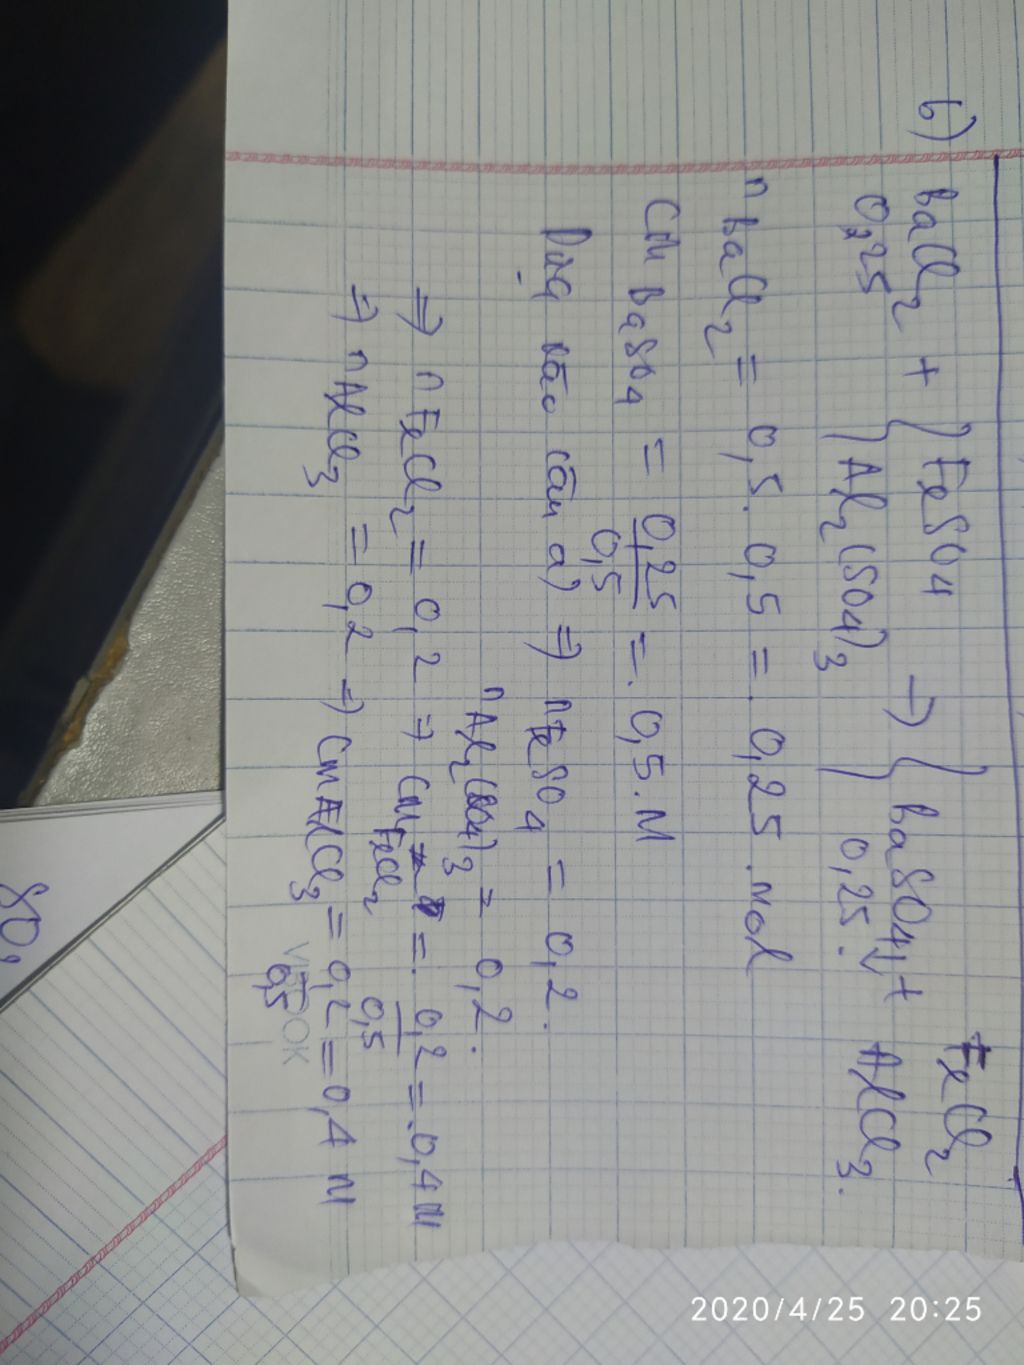 b) BaCl2 + { FeSO4 → { BaSO4↓ + FeCl2
0,25 Al2(SO4)3 0,25. ↓ AlCl3.
nBaCl2 = 0,5. 0,5 =. 0,25. mol
CM BaSO4 = 0,25/0,5 =. 0,5. M
Dựa vào câu a) ⇒ nFeSO4 = 0,2.
nAl2(SO4)3 = 0,2.
⇒ nFeCl2 = 0,2 → CM FeCl2 =. 0,2/0,5 =. 0,4M
⇒ nAlCl3 = 0,2 → CM AlCl3 = 0,2/0,5 = 0,4 M
SO4
2020/4/25 20:25